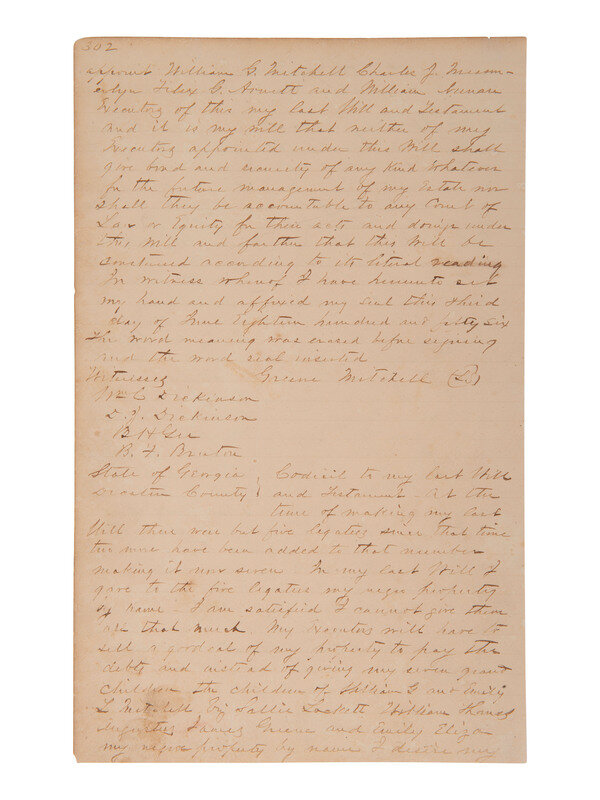 302
appoint William G. Mitchell Charles J.
G. Arnett and William
Executors of this my last Will and Testament
and it is my will that neither of my
Executors appointed under this Will shall
give bond and security of any Kind Whatever
for the future management of my Estate nor
shall they be accountable to any Court of
Law or Equity for their acts and doings under
this Will and farther that this Will be
construed according to its literal reading
In witness whereof I have hereunto set
my hand and affixed my seal this third
day of June Eighteen hundred and fifty six
The word meaning was erased before signing
and the word seal inserted
Witnesses Greene Mitchell (L.s)
Wm C Dickinson
D. J. Dickinson
B H Gee
B. F. Bruton
State of Georgia Codicil to my last Will
Decatur County and Testament - At the
time of making my last
Will there were but five legatees since that time
two more have been added to that number
making it now seven In my last Will I
gave to the five legatees my negro property
by name - I am satisfied I cannot give them
all that much My Executors will have to
sell a good eal of my property to pay the
debts and instead of giving my seven grand
children the children of William G and Emily
L Mitchell Viz Sallie Lockett William Thomas
Augustus James Greene and Emily Eliza
my negro property by name I desire my